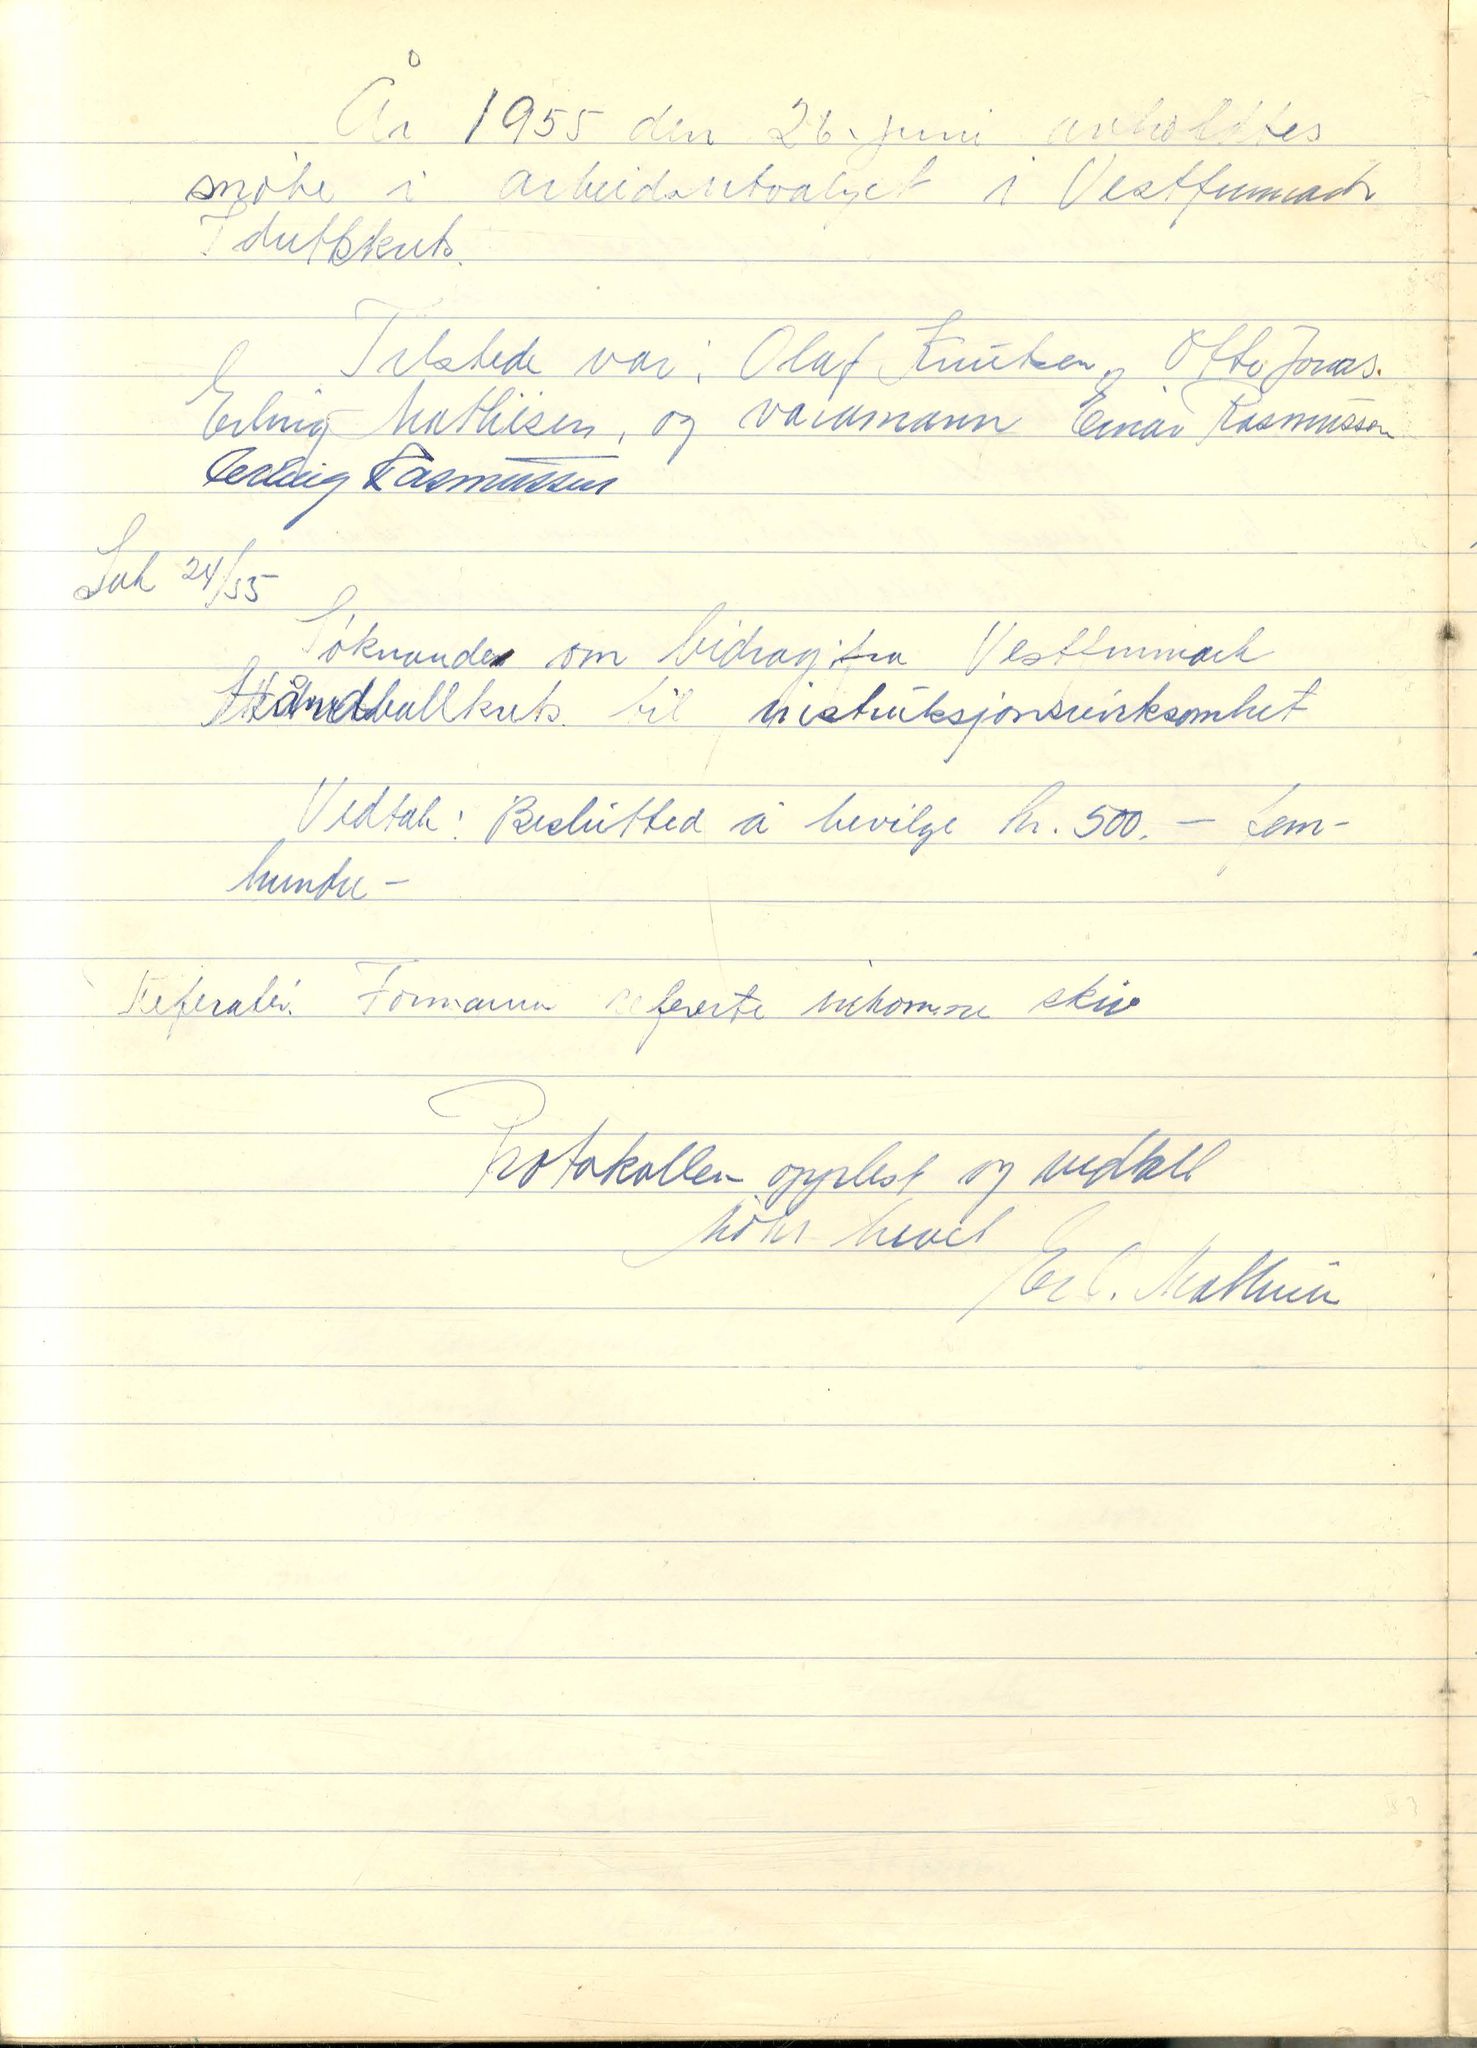 År 1955 den 26. juni avholdtes
møte i arbeidsutvalget i Vestfinnmark
Idrettskrets.
Tilstede var: Olaf Knutsen, Otto Jonas.
Erling Mathisen, og varamann Einar Rasmussen
Rasmussen
Sak 24/55
Søknander om bidrag fra Vestfinnmark
Håndballkrets til instruksjonsvirksomhet
Vedtak: Beslutted å bevilge kr. 500.- fem-
hundre-
Referater. Formann refererte inkomne skriv
Protokollen opplest og vedtatt
Møte hevet
Erl. Mathisen